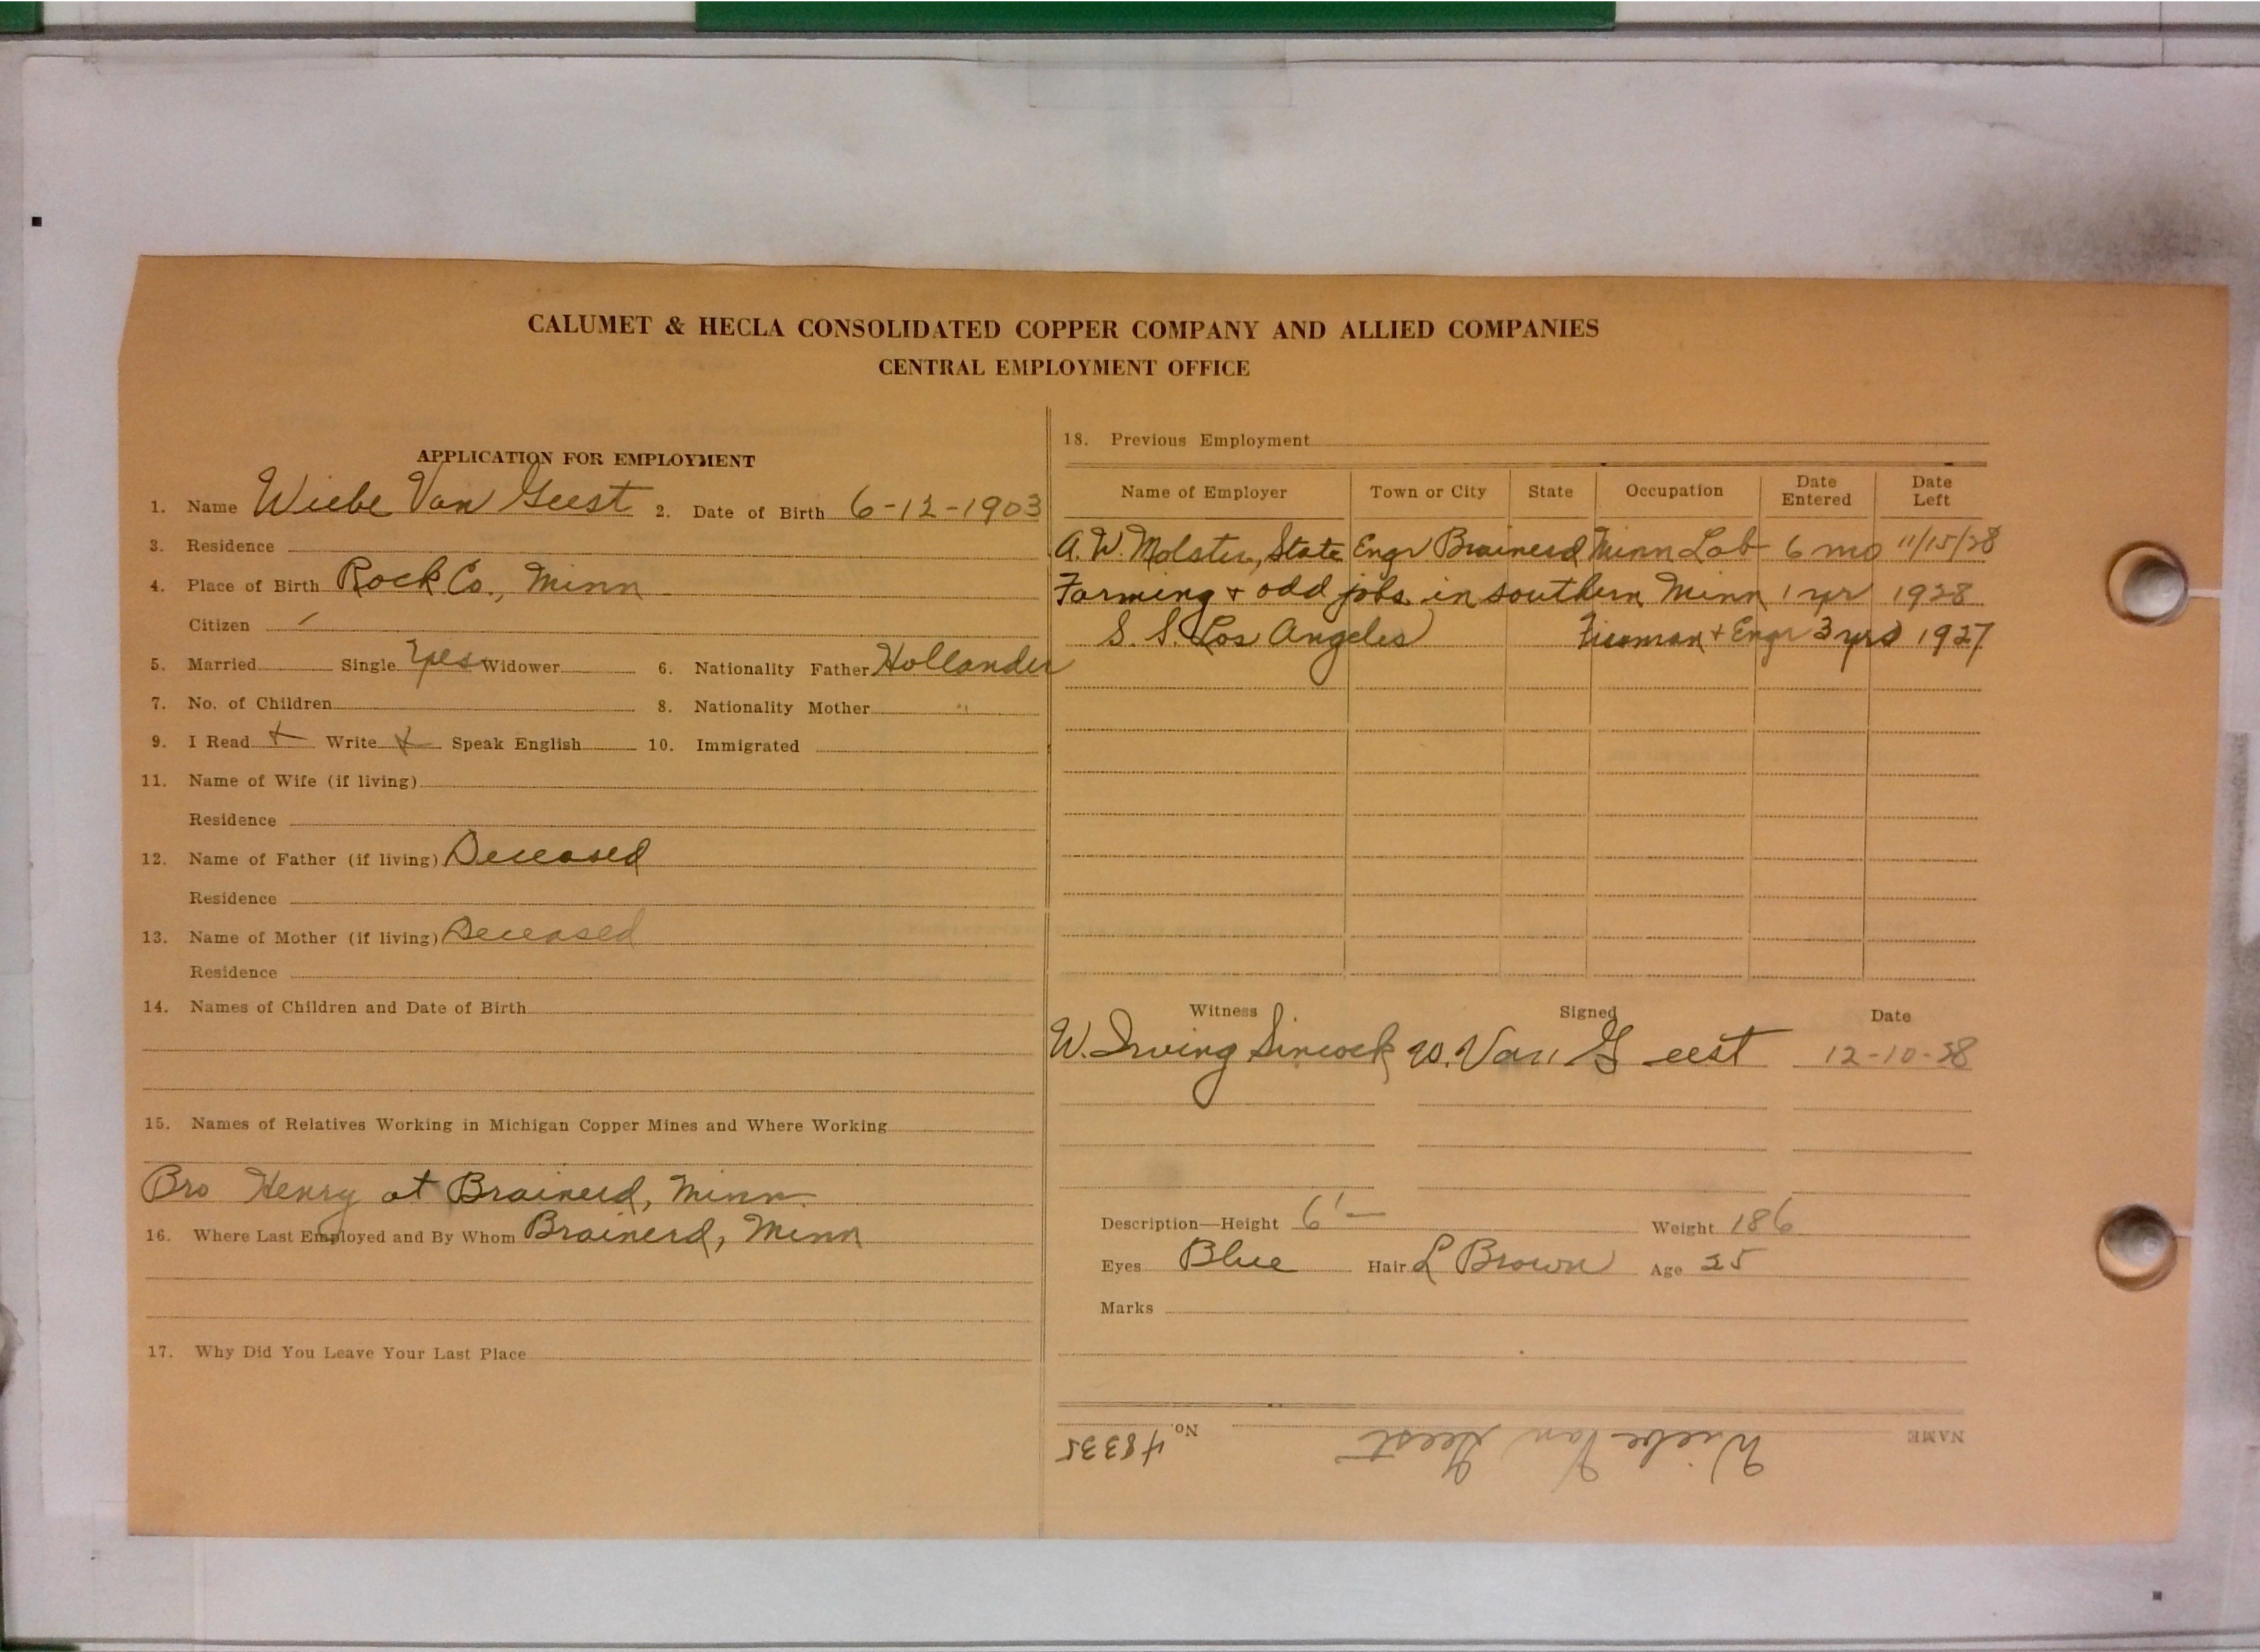 CALUMET & HECLA CONSOLIDATED COPPER COMPANY AND ALLIED COMPANIES
CENTRAL EMPLOYMENT OFFICE
APPLICATION FOR EMPLOYMENT
1. Name Wiebe Van Geest 2. Date of Birth 6-12-1903
3. Residence
4. Place of Birth Rock Co., Minn
Citizen /
5. Married Single Yes Widower 6. Nationality Father Hollander
7. No. of Children 8. Nationality Mother "
9. I Read + Write + Speak English 10. Immigrated
11. Name of Wife (if living)
Residence
12. Name of Father (if living) Deceased
Residence
13. Name of Mother (if living) Deceased
Residence
14. Names of Children and Date of Birth
15. Names of Relatives Working in Michigan Copper Mines and Where Working
Bro Henry at Brainerd, Minn.
16. Where Last Employed and By Whom Brainerd, Minn
17. Why Did You Leave Your Last Place
18. Previous Employment
Name of Employer Town or City State Occupation Date Entered Date Left
A. W. Molster, State Engr Brainerd Minn Lab 6 mo 11/15/28
Farming + odd jobs in southern Minn 1 yr 1928
S. S. Los Angeles Fireman + Engr 3 yrs 1927
Witness Signed Date
W. Irving Sincock W. Van Geest 12-10-28
Description—Height 6'— Weight 186
Eyes Blue Hair L Brown Age 25
Marks
NAME Wiebe Van Geest No. 48335